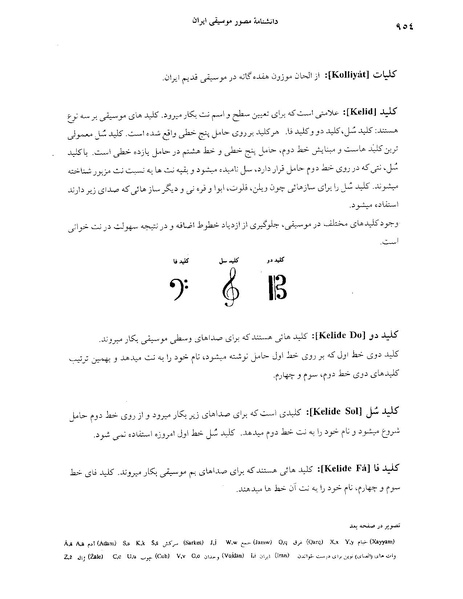 دانشنامهٔ مصور موسیقی ایران
٩٥٤
کلیات [Kolliyât]: از الحان موزون هفده‌گانه در موسیقی قدیم ایران.
کلید [Kelid]: علامتی است که برای تعیین سطح و اسم نت بکار میرود. کلید های موسیقی بر سه نوع
هستند: کلید سُل، کلید دو و کلید فا. هرکلید بر روی حامل پنج خطی واقع شده است. کلید سُل معمولی
ترین کلید هاست و مبنایش خط دوم، حامل پنج خطی و خط هشتم در حامل یازده خطی است. با کلید
سُل، نتی که در روی خط دوم حامل قرار دارد، سل نامیده میشود و بقیه نت ها به نسبت نت مزبور شناخته
میشوند. کلید سُل را برای سازهائی چون ویلن، فلوت، ابوا و قره نی و دیگر ساز هائی که صدای زیر دارند
استفاده میشود.
وجود کلیدهای مختلف در موسیقی، جلوگیری از ازدیاد خطوط اضافه و در نتیجه سهولت در نت خوانی
است.
کلید دو کلید سل کلید فا
کلید دو [Kelide Do]: کلید هائی هستند که برای صداهای وسطی موسیقی بکار میروند.
کلید دوی خط اول که بر روی خط اول حامل نوشته میشود، نام خود را به نت میدهد و بهمین ترتیب
کلیدهای دوی خط دوم، سوم و چهارم.
کلید سُل [Kelide Sol]: کلیدی است که برای صداهای زیر بکار میرود و از روی خط دوم حامل
شروع میشود و نام خود را به نت خط دوم میدهد. کلید سُل خط اول امروزه استفاده نمی شود.
کلید فا [Kelide Fâ]: کلید هائی هستند که برای صداهای بم موسیقی بکار میروند. کلید فای خط
سوم و چهارم، نام خود را به نت آن خط ها میدهند.
تصویر در صفحه بعد
A,a A,a آدم (Adam) S,s K,k S,s سرکش (Sarkeš) J,j W,w جمع (Jamw) Q,q غرق (Qarq) X,x Y,y خیام (Xayyam)
Z,z ژاله (Žale) C,c U,u چوب (Cub) V,v O,o وجدان (Vojdan) I,i ایران (Iran) وات های (الفبای) نوین برای درست خواندن